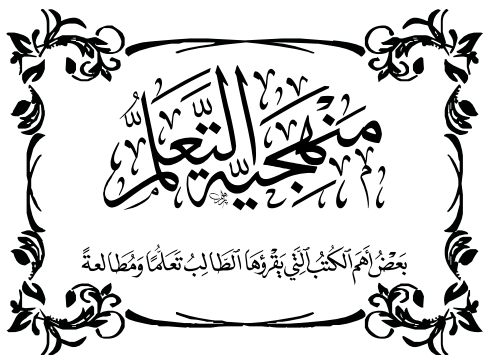 مَنْهَجِيَّةُ التَّعَلُّمِ
بَعْضُ أَهَمِ الكُتُبُ الَّتِي يَقْرَؤُهَا الطَّالِبُ تَعَلُّمًا وَمُطَالعةً